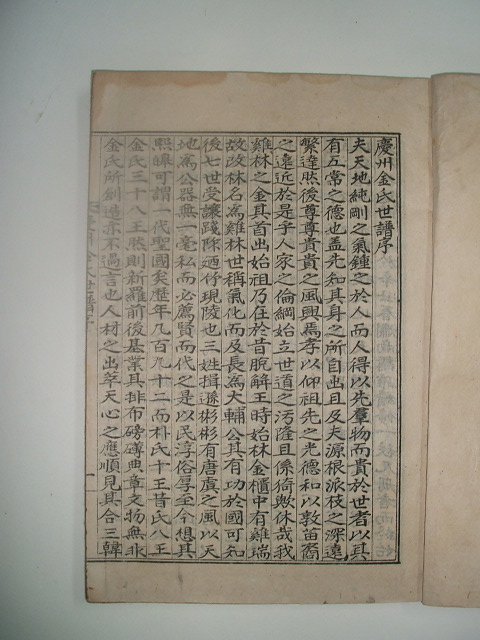 慶州金氏世譜序
夫天地純剛之氣鍾之於人而人得以先羣物而貴於世者以其
有五常之德也盖先知其身之所自出且及夫源根派枝之深遠
繁達然後尊尊貴貴之風興焉孝以仰祖先之光德和以敎苗裔
之遠近於是乎人家之倫綱始立世道之汚隆且係猗歟休哉我
雞林之金其首出始祖乃在於昔脫解王時始林金櫃中有雞瑞
故改林名爲雞林世稱氣化而及長爲大輔公其有功於國可知
後七世受讓踐除廼俘現陵也三姓揖遜彬彬有唐虞之風以天
地爲公器無一毫私而必薦賢而代之是以民淳俗厚至今想其
熙皞可謂一代聖國矣歷年几百九十二而朴氏十王昔氏八王
金氏三十八王然則新羅前後基業其排布磅礴典章文物無非
金氏所創造亦不過言也人材之出萃天心之應順見其合三韓